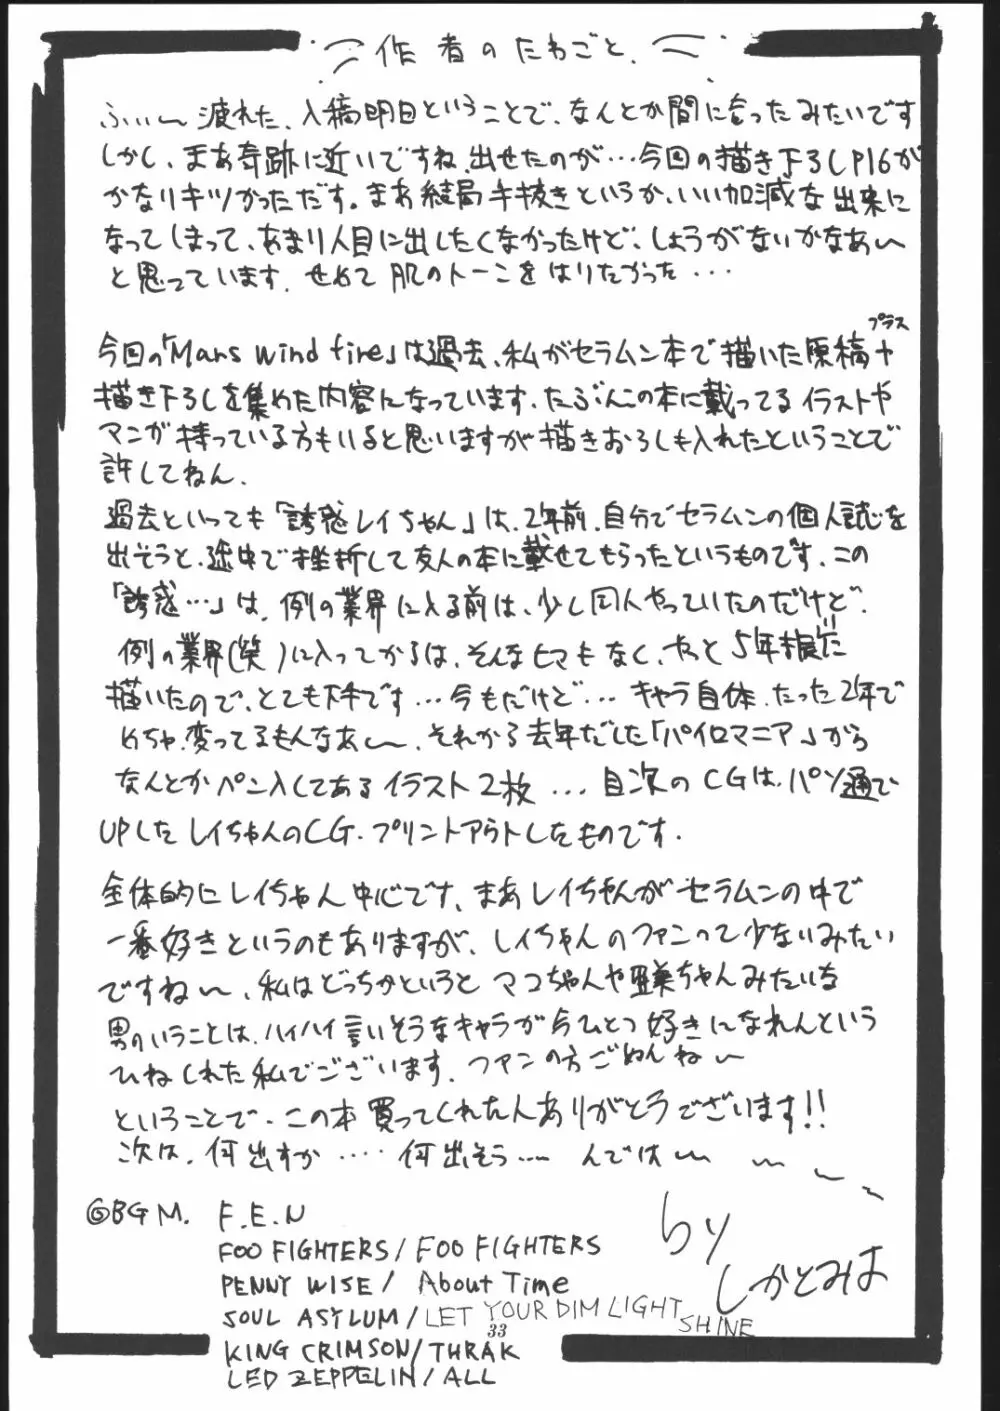 作者のたわごと.
ふぃ〜疲れた、入稿明日ということで、なんとか間に合ったみたいです
しかし、まあ奇跡に近いですね.出せたのが…今回の描き下ろしP16が
かなりキツかっただす。まあ結局手抜きというか、いい加減な出来に
なってしまって、あまり人目に出したくなかったけど、しょうがないかなあ〜
と思っています.せめて肌のトーンをはりたかった...
プラス
今回の「Mars wind fire」は過去、私がセラムン本で描いた原稿+
描き下ろしを集めた内容になっています.たぶんこの本に載ってるイラストや
マンガ持っている方もいると思いますが描きおろしも入れたということで
許してねん.
過去といっても「誘惑レイちゃん」は、2年前.自分でセラムンの個人誌を
出そうと、途中で挫折して友人の本に載せてもらったというものです.この
「誘惑…」は、例の業界に入る前は、少し同人やっていたのだけど、
例の業界(笑)に入ってからは、そんなヒマもなく、やっと5年振りに
描いたので、とても下手です…今もだけど…キャラ自体.たった2年で
めちゃ変ってるもんなあ〜.それから去年だした「パイロマニア」から
なんとかペン入してあるイラスト2枚...目次のCGは、パソ通で
UPしたレイちゃんのCG.プリントアウトしたものです.
全体的にレイちゃん中心です、まあレイちゃんがセラムンの中で
一番好きというのもありますが、レイちゃんのファンって少ないみたい
ですね〜、私はどっちかというとマコちゃんや亜美ちゃんみたいな
男のいうことは、ハイハイ言いそうなキャラが今ひとつ好きになれんという
ひねくれた私でございます.ファンの方ごめんね〜
ということで.この本買ってくれた人ありがとうございます!!
次は.何出すか....何出そう……んでは〜〜〜〜〜
by しかとみは
◎BGM. F.E.N
FOO FIGHTERS/FOO FIGHTERS
PENNY WISE/ About Time
SOUL ASYLUM/LET YOUR DIM LIGHT SHINE
33
KING CRIMSON/THRAK
LED ZEPPELIN/ALL